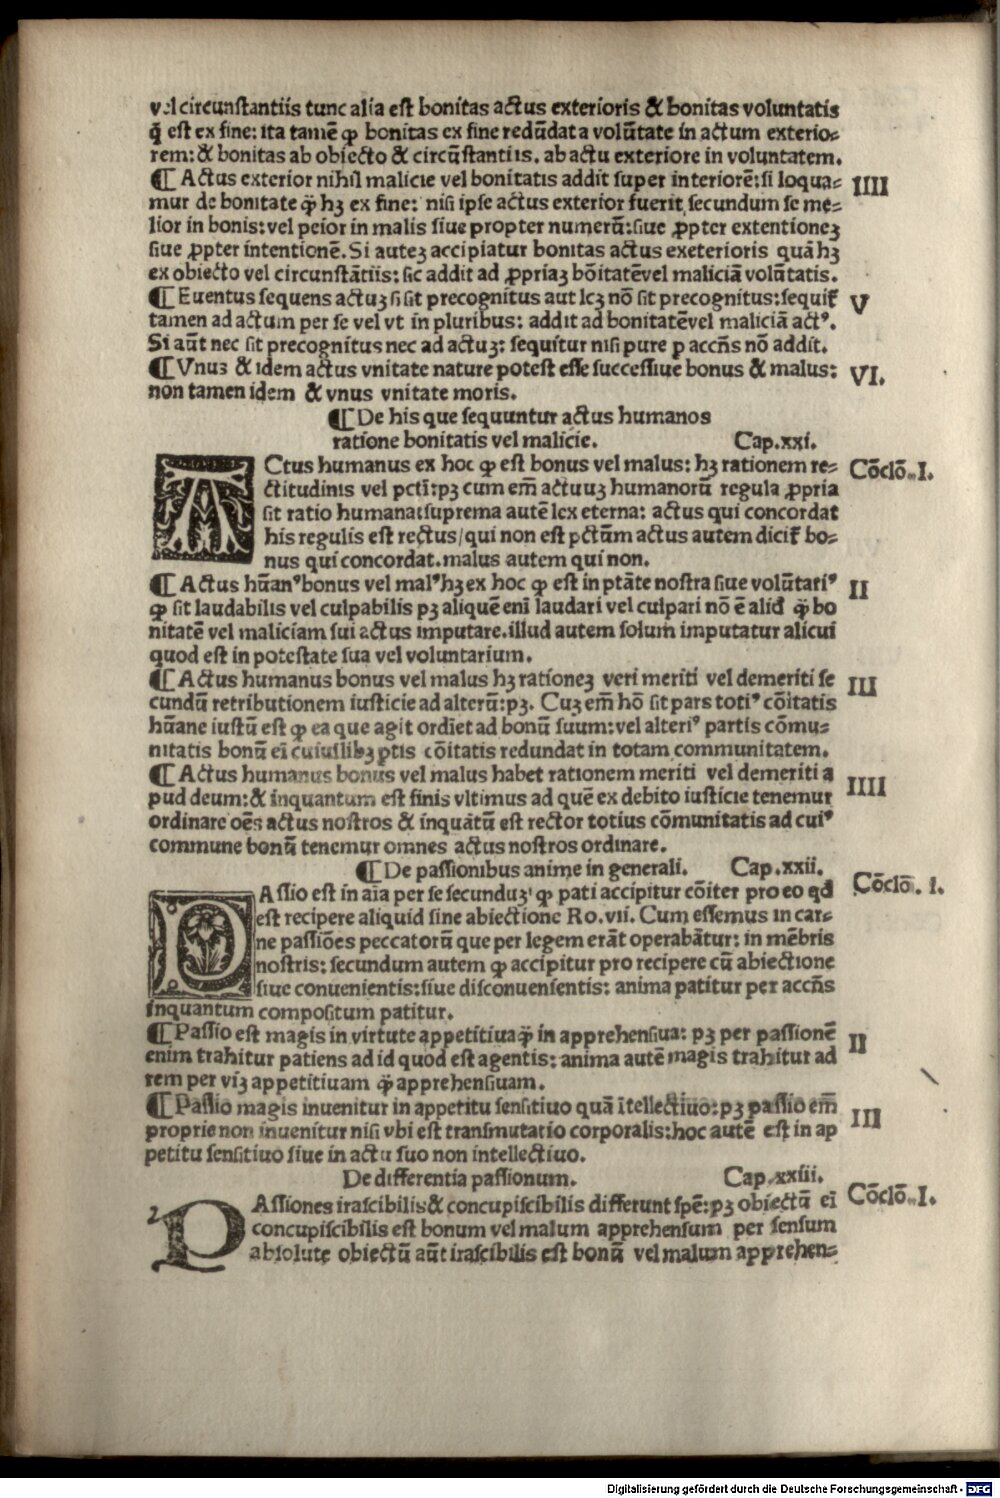 vel circunstantiis tunc alia est bonitas actus exterioris & bonitas voluntatis
q̃ est ex fine: ita tamē ꝙ bonitas ex fine redūdat a volūtate in actum exterio⸗
rem: & bonitas ab obiecto & circūstantiis. ab actu exteriore in voluntatem.
¶ Actus exterior nihil malicie vel bonitatis addit super interiorē: si loqua⸗ IIII
mur de bonitate q̃ hꝫ ex fine: nisi ipse actus exterior fuerit secundum se me⸗
lior in bonis: vel peior in malis siue propter numerū: siue ꝓpter extentioneꝫ
siue ꝓpter intentionē. Si auteꝫ accipiatur bonitas actus exeterioris quā hꝫ
ex obiecto vel circunstātiis: sic addit ad ꝓpriaꝫ bōitatēvel maliciā volūtatis.
¶ Euentus sequens actuꝫ si sit precognitus aut lcꝫ nō sit precognitus: sequit᷑ V
tamen ad actum per se vel vt in pluribus: addit ad bonitatēvel maliciā actꝰ.
Si aūt nec sit precognitus nec ad actuꝫ: sequitur nisi pure p accn̄s nō addit.
¶ Vnuꝫ & idem actus vnitate nature potest esse successiue bonus & malus: VI.
non tamen idem & vnus vnitate moris.
¶ De his que sequuntur actus humanos
ratione bonitatis vel malicie. Cap.xxi.
ACtus humanus ex hoc ꝙ est bonus vel malus: hꝫ rationem re⸗ Cōclō. I.
ctitudinis vel pctī: pꝫ cum em̄ actuuꝫ humanorū regula ꝓpria
sit ratio humana: suprema autē lex eterna: actus qui concordat
his regulis est rectus/ qui non est pctūm actus autem dicit᷑ bo⸗
nus qui concordat. malus autem qui non.
¶ Actus hūanꝰ bonus vel malꝰ hꝫ ex hoc ꝙ est in ptāte nostra siue volūtariꝰ II
ꝙ sit laudabilis vel culpabilis pꝫ aliquē enī laudari vel culpari nō ē alid ꝙ̃ bo
nitatē vel maliciam sui actus imputare. illud autem solum imputatur alicui
quod est in potestate sua vel voluntarium.
¶ Actus humanus bonus vel malus hꝫ rationeꝫ veri meriti vel demeriti se III
cundū retributionem iusticie ad alterū: pꝫ. Cuꝫ em̄ hō sit pars totiꝰ cōitatis
hūane iustū est ꝙ ea que agit ordīet ad bonū suum: vel alteriꝰ partis cōmu⸗
nitatis bonū eī cuiuslibꝫ ꝑtis cōitatis redundat in totam communitatem.
¶ Actus humanus bonus vel malus habet rationem meriti vel demeriti a IIII
pud deum: & inquantum est finis vltimus ad quē ex debito iusticie tenemur
ordinare oēs actus nostros & inquātū est rector totius cōmunitatis ad cuiꝰ
commune bonū tenemur omnes actus nostros ordinare.
¶ De passionibus anime in generali. Cap.xxii.
PAssio est in aīa per se secunduꝫ ꝙ pati accipitur cōiter pro eo qd Cōclō. I.
est recipere aliquid sine abiectione Ro.vii. Cum essemus in car⸗
ne passiōes peccatorū que per legem erāt operabātur: in mēbris
nostris: secundum autem ꝙ accipitur pro recipere cū abiectione
siue conuenientis: siue disconuenientis: anima patitur per accn̄s
inquantum compositum patitur.
¶ Passio est magis in virtute appetitiua ꝙ̃ in apprehensiua: pꝫ per passionē II
enim trahitur patiens ad id quod est agentis: anima autē magis trahitur ad
rem per viꝫ appetitiuam ꝙ̃ apprehensiuam.
¶ Passio magis inuenitur in appetitu sensitiuo quā ītellectiuo: pꝫ passio em̄ III
proprie non inuenitur nisi vbi est transmutatio corporalis: hoc autē est in ap
petitu sensitiuo siue in actu suo non intellectiuo.
De differentia passionum. Cap.xxiii.
PAssiones irascibilis & concupiscibilis differunt spē: pꝫ obiectū eī Cōclō. I.
concupiscibilis est bonum vel malum apprehensum per sensum
absolute obiectū aūt irascibilis est bonū vel malum apprehen⸗
Digitalisierung gefördert durch die Deutsche Forschungsgemeinschaft - DFG